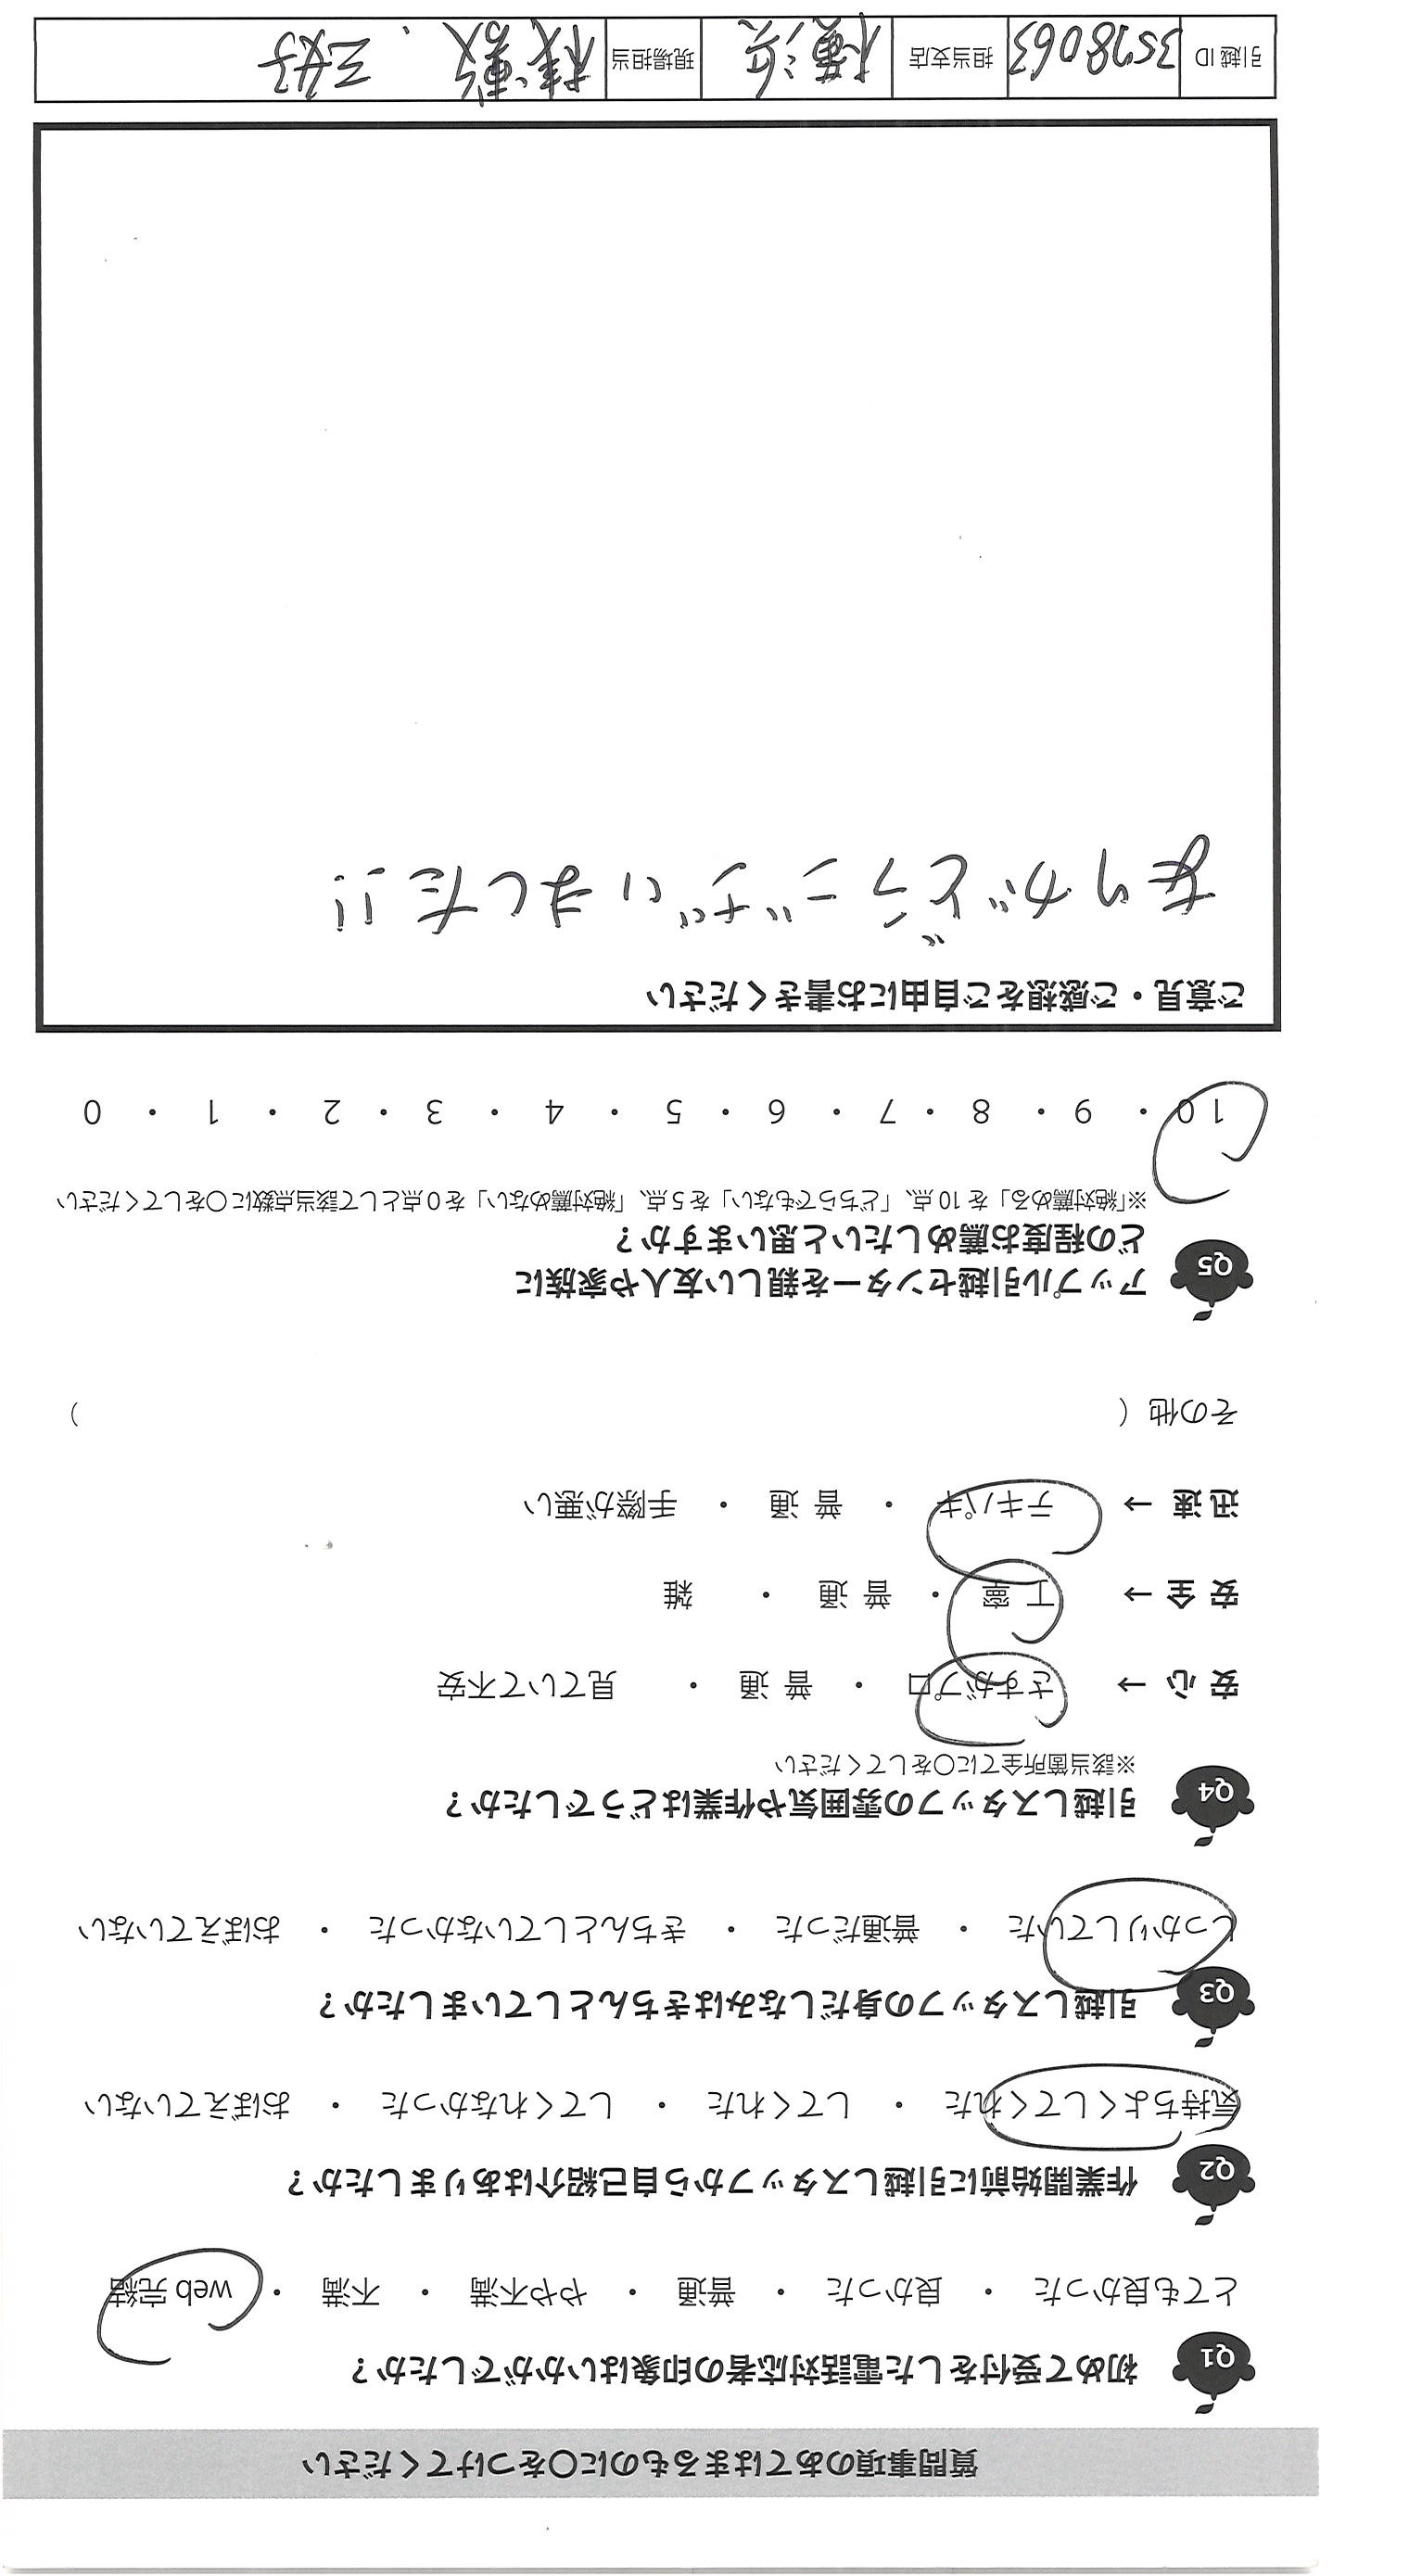 質問事項のあてはまるものに〇をつけてください
Q1 初めて受付をした電話対応者の印象はいかがでしたか？
とても良かった ・ 良かった ・ 普通 ・ やや不満 ・ 不満 ・ web 完結
Q2 作業開始前に引越しスタッフから自己紹介はありましたか？
気持ちよくしてくれた ・ してくれた ・ してくれなかった ・ おぼえていない
Q3 引越しスタッフの身だしなみはきちんとしていましたか？
しっかりしていた ・ 普通だった ・ きちんとしていなかった ・ おぼえていない
Q4 引越しスタッフの雰囲気や作業はどうでしたか？
※該当箇所全てに〇をしてください
安 心 → さすがプロ ・ 普 通 ・ 見ていて不安
安 全 → 丁 寧 ・ 普 通 ・ 雑
迅 速 → テキパキ ・ 普 通 ・ 手際が悪い
その他（ ）
Q5 アップル引越センターを親しい友人や家族に
どの程度お薦めしたいと思いますか？
※「絶対薦める」を 10 点、「どちらでもない」を 5 点、「絶対薦めない」を 0 点として該当点数に〇をしてください
10 ・ 9 ・ 8 ・ 7 ・ 6 ・ 5 ・ 4 ・ 3 ・ 2 ・ 1 ・ 0
ご意見・ご感想をご自由にお書きください
ありがとうございました!!
引越 ID 3578063 担当支店 横浜 現場担当 、三好